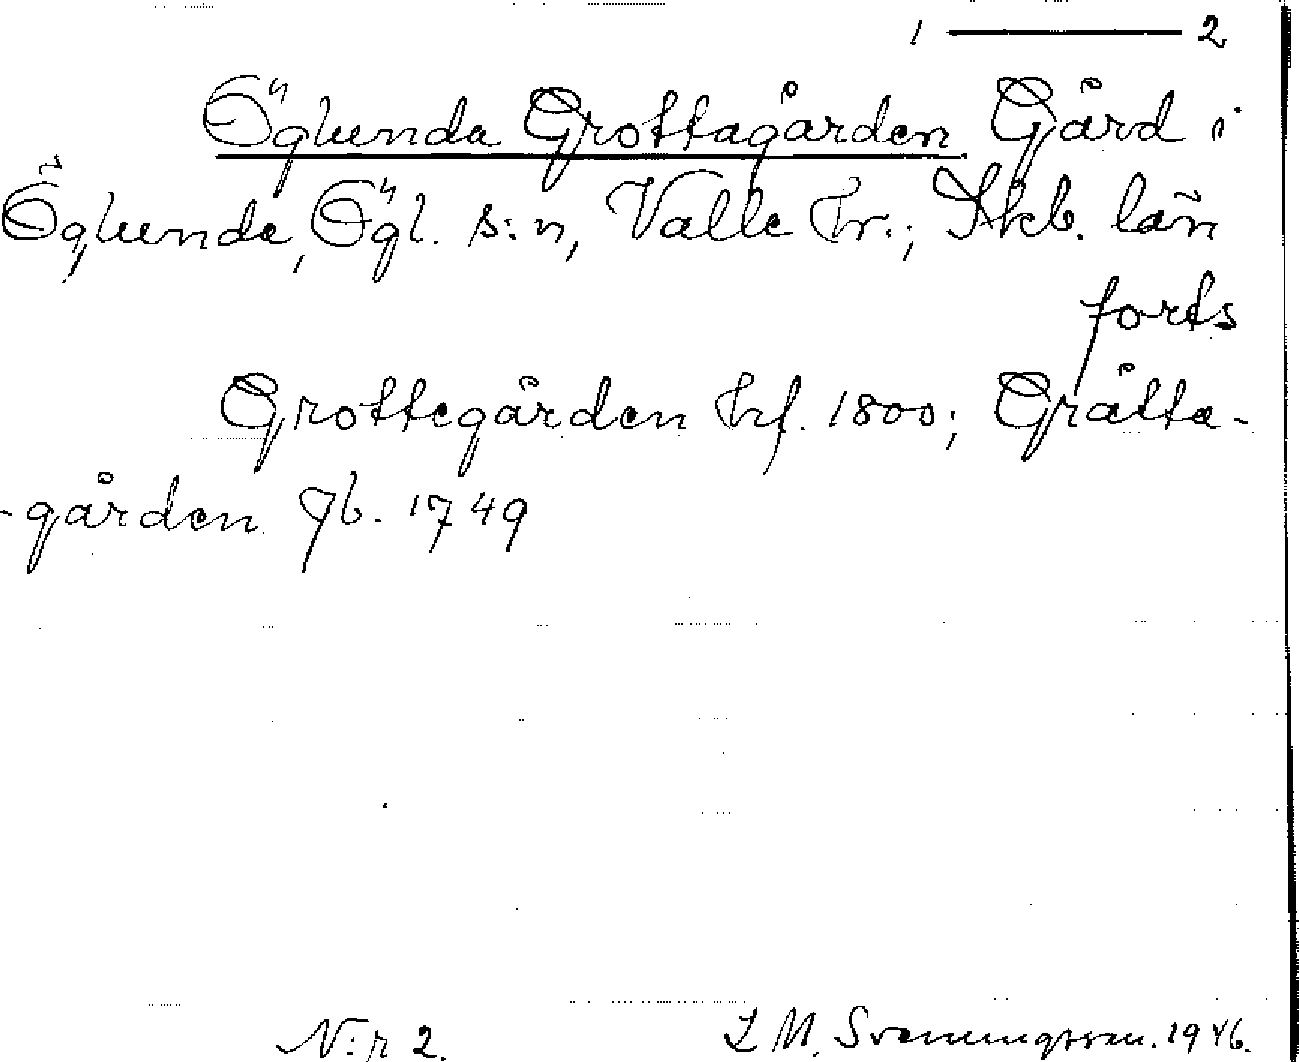 1 — 2
Öglunda Grottagården Gård i
Öglunda, Ögl. s:n, Valle hr.; Skb. län
forts
Grottegården hrf. 1800; Grålta-
-gården Jb. 1749
N:r 2. L M. Svenungsson. 1946.